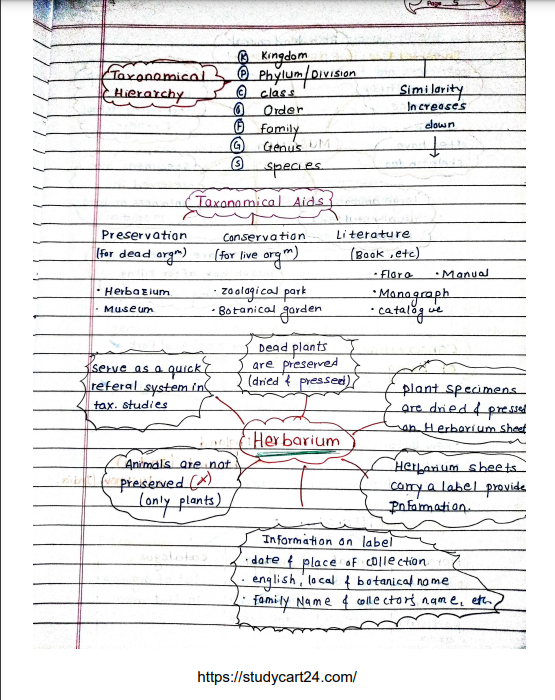 Page 5
Taxonomical
Hierarchy
K Kingdom
P Phylum/Division
C Class
O Order
F Family
G Genus
S Species
Similarity
Increases
down
Taxonomical Aids
Preservation
(for dead orgm)
• Herbarium
• Museum
Conservation
(for live orgm)
• Zoological park
• Botanical garden
Literature
(Book, etc)
• Flora • Manual
• Monograph
• catalogue
Dead plants
are preserved
(dried & pressed)
Serve as a quick
referal system in
tax. studies
plant specimens
are dried & pressed
on Herbarium sheet
Herbarium
Animals are not
preserved (x)
(only plants)
Herbarium sheets
carry a label provide
Information.
Information on label
• date & place of collection
• english, local & botanical name
• family Name & collectors name, etc.
https://studycart24.com/